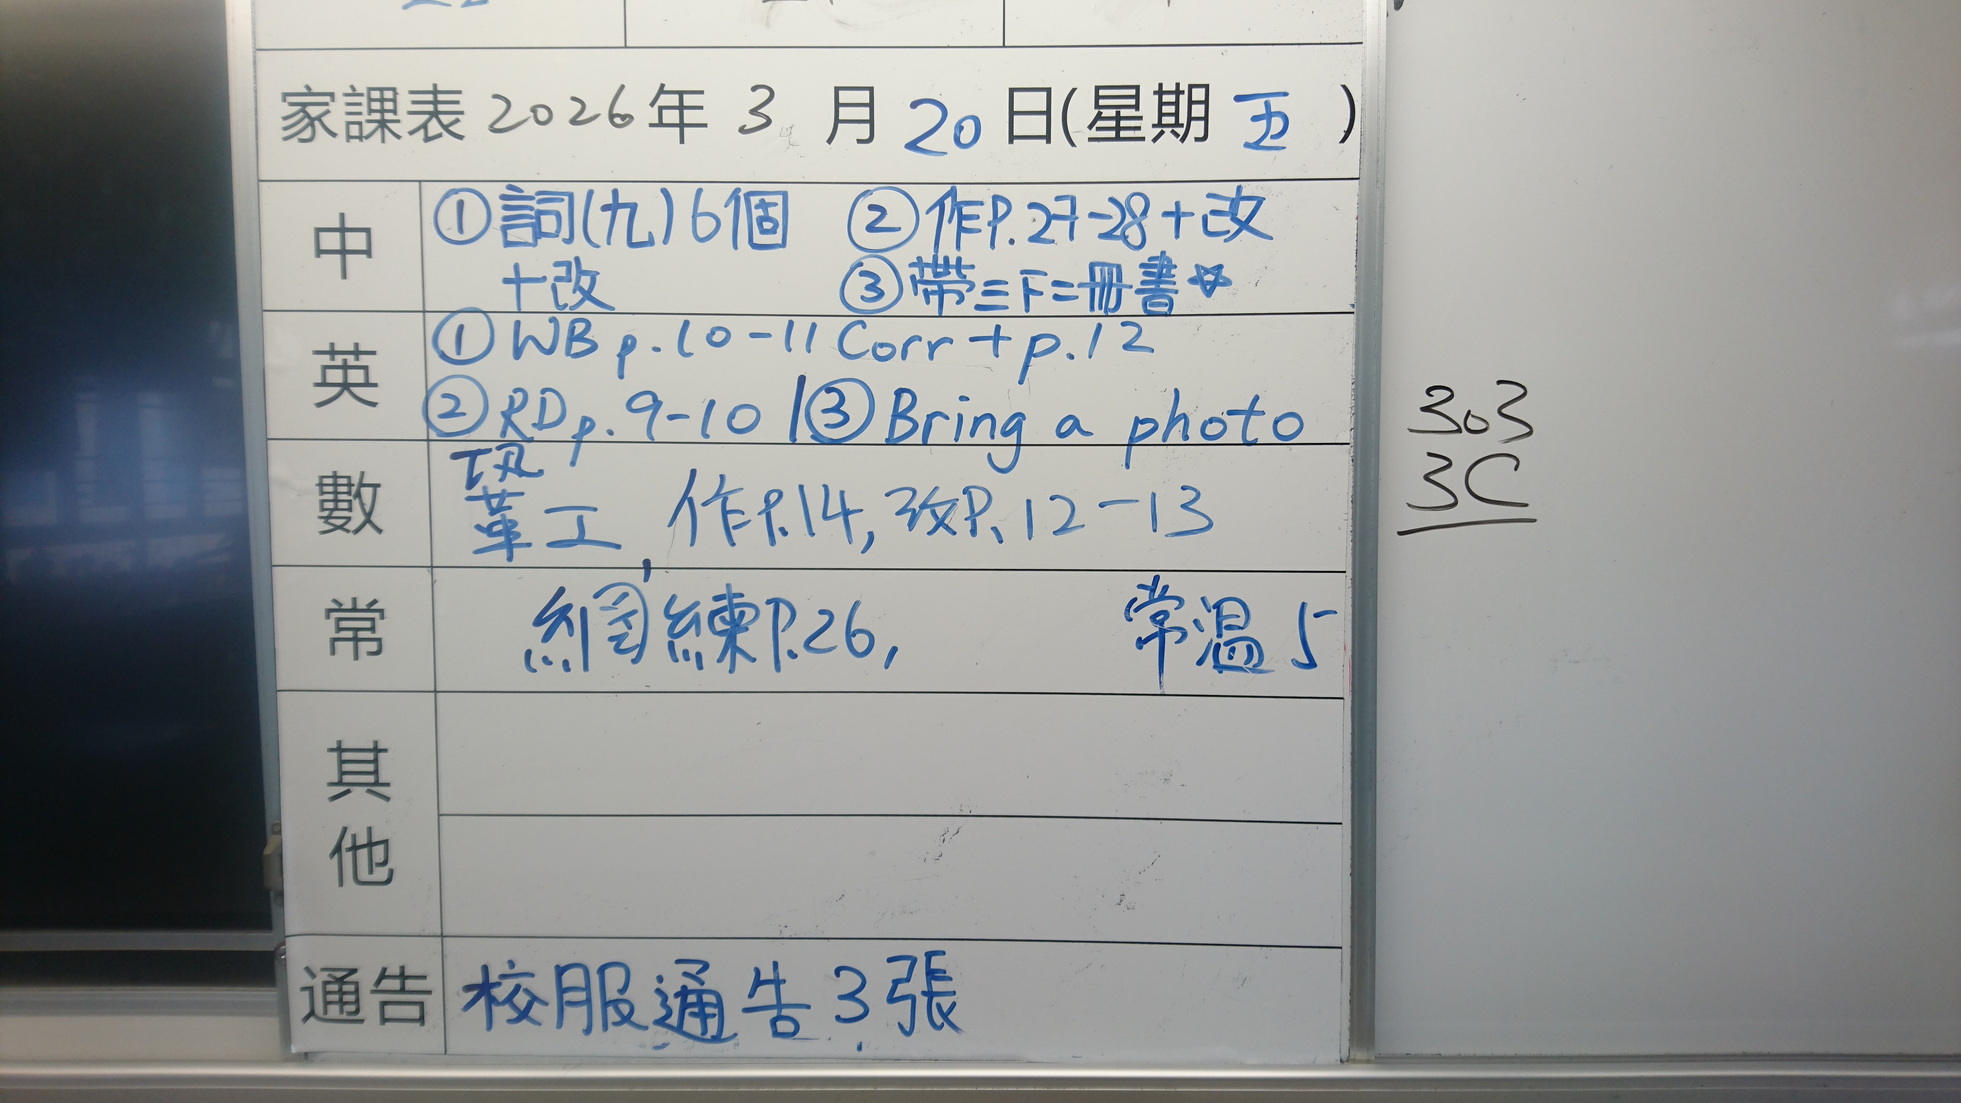 家課表 2026年 3月 20日(星期 五)
中
①詞(九)6個 ②作P.27-28+改
+改 ③帶三下二冊書☆
英
①WB p.10-11 Corr + p.12
②RD p.9-10 | ③Bring a photo
數
工, 作P.14, 改P.12-13
常
網練P.26, 常溫5
其他
通告 校服通告3張
303
3C